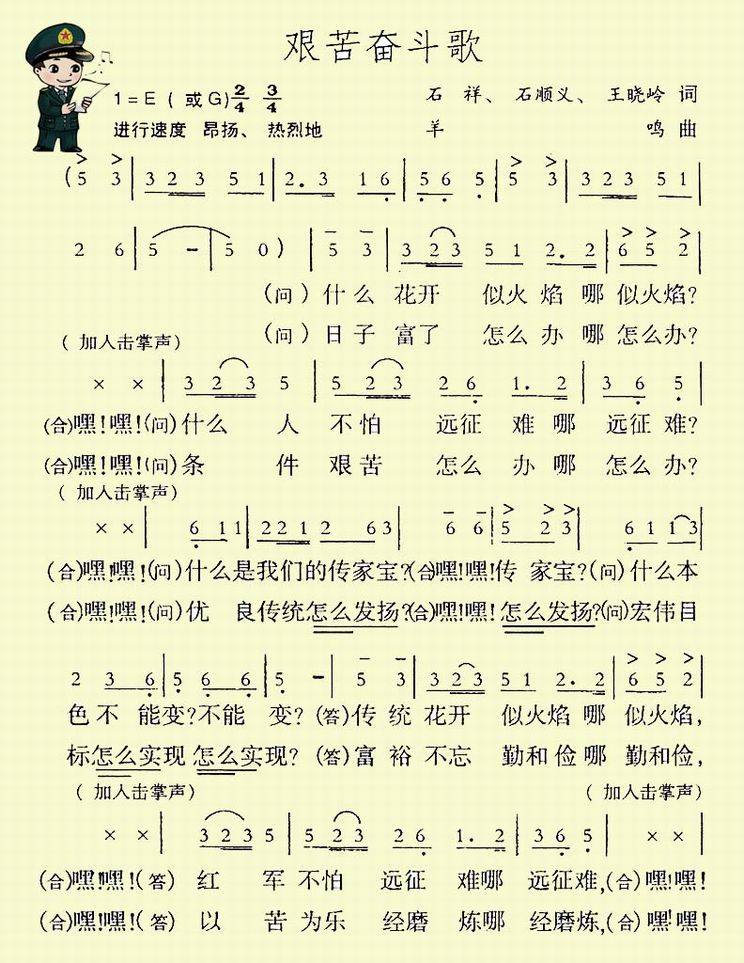 艰苦奋斗歌
1=E (或G) 2/4 3/4
石 祥、 石顺义、 王晓岭 词
进行速度 昂扬、 热烈地
羊 鸣 曲
(5 3 | 3 2 3 5 1 | 2. 3 1 6 | 5 6 5 | 5 3 | 3 2 3 5 1 |
2 6 | 5 - | 5 0) | 5 3 | 3 2 3 5 1 2. 2 | 6 5 2 |
(问) 什么 花开 似火焰 哪 似火焰?
(问) 日子 富了 怎么办 哪 怎么办?
( 加入击掌声)
× × | 3 2 3 5 | 5 2 3 2 6 1. 2 | 3 6 5 |
(合)嘿!嘿!(问)什么 人 不怕 远征 难 哪 远征难?
(合)嘿!嘿!(问)条 件 艰苦 怎么 办 哪 怎么办?
( 加入击掌声)
× × | 6 1 1 | 2 2 1 2 6 3 | 6 6 | 5 2 3 | 6 1 1 3 |
(合)嘿!嘿!(问)什么是我们的传家宝?(合)嘿!嘿!传 家宝?(问)什么本
(合)嘿!嘿!(问)优 良传统怎么发扬?(合)嘿!嘿! 怎么发扬?(问)宏伟目
2 3 6 | 5 6 6 | 5 - | 5 3 | 3 2 3 5 1 2. 2 | 6 5 2 |
色不 能变?不能 变? (答)传 统 花开 似火焰 哪 似火焰,
标怎么实现 怎么实现? (答)富 裕 不忘 勤和俭哪 勤和俭,
( 加入击掌声) ( 加入击掌声)
× × | 3 2 3 5 | 5 2 3 2 6 1. 2 | 3 6 5 | × × |
(合)嘿!嘿!(答) 红 军 不怕 远征 难哪 远征难,(合) 嘿!嘿!
(合)嘿!嘿!(答) 以 苦 为乐 经磨 炼哪 经磨炼,(合) 嘿!嘿!